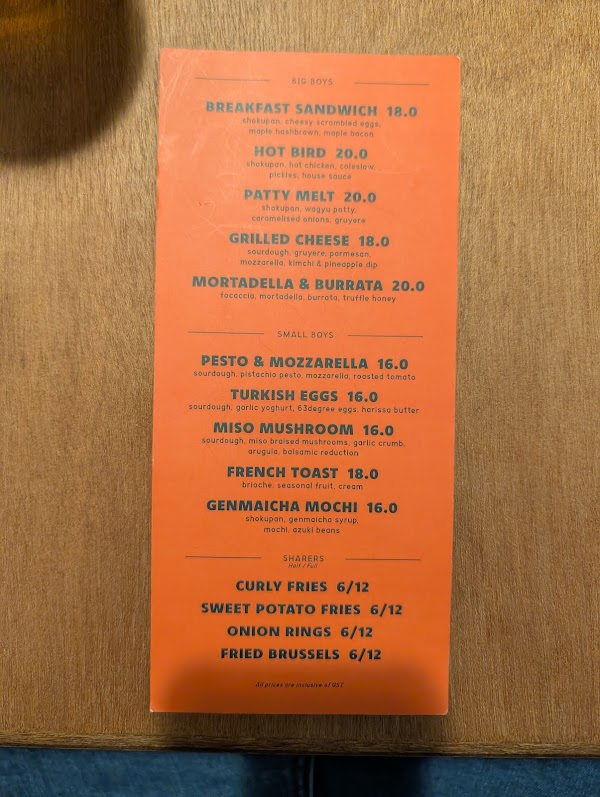 BIG BOYS
BREAKFAST SANDWICH 18.0
shokupan, cheesy scrambled eggs,
maple hashbrown, maple bacon
HOT BIRD 20.0
shokupan, hot chicken, coleslaw,
pickles, house sauce
PATTY MELT 20.0
shokupan, wagyu patty,
caramelised onions, gruyere
GRILLED CHEESE 18.0
sourdough, gruyere, parmesan,
mozzarella, kimchi & pineapple dip
MORTADELLA & BURRATA 20.0
focaccia, mortadella, burrata, truffle honey
SMALL BOYS
PESTO & MOZZARELLA 16.0
sourdough, pistachio pesto, mozzarella, roasted tomato
TURKISH EGGS 16.0
sourdough, garlic yoghurt, 63degree eggs, harissa butter
MISO MUSHROOM 16.0
sourdough, miso braised mushrooms, garlic crumb,
arugula, balsamic reduction
FRENCH TOAST 18.0
brioche, seasonal fruit, cream
GENMAICHA MOCHI 16.0
shokupan, genmaicha syrup,
mochi, azuki beans
SHARERS
Half / Full
CURLY FRIES 6/12
SWEET POTATO FRIES 6/12
ONION RINGS 6/12
FRIED BRUSSELS 6/12
All prices are inclusive of GST